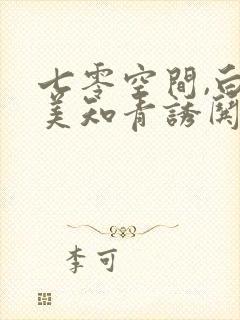 七零空間,白
美知青誘闕
李可